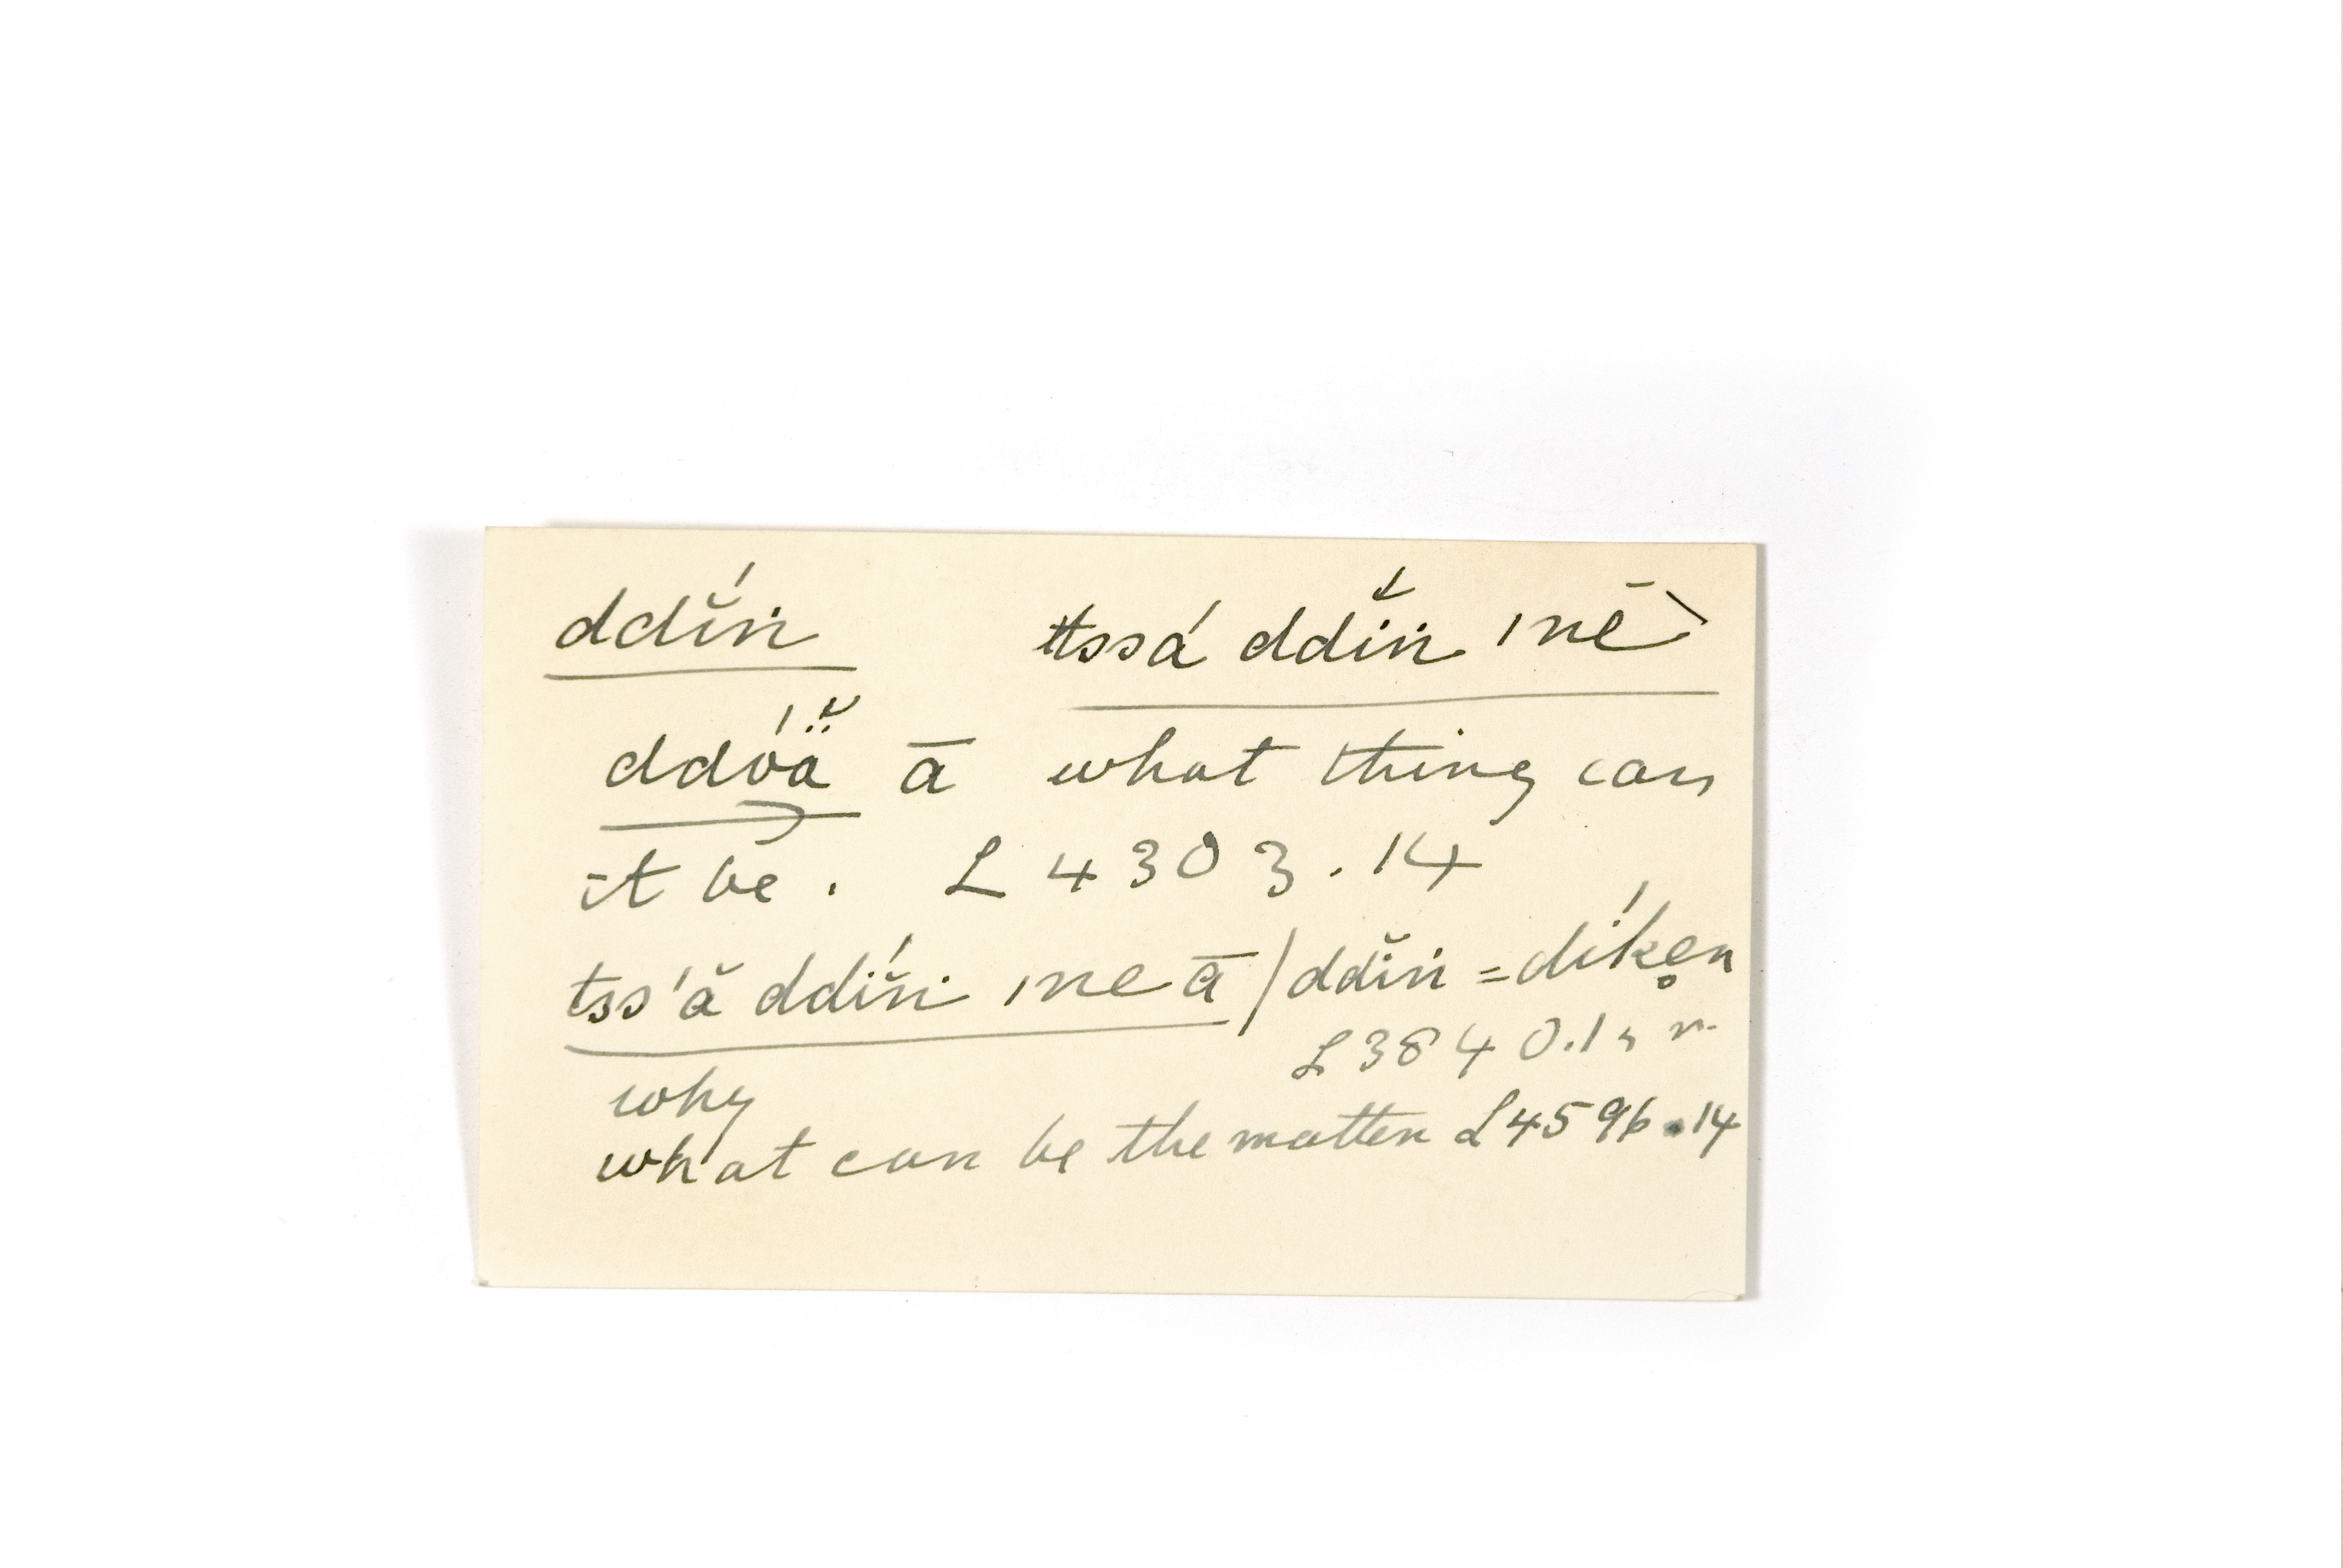 ddĭ́ṅ tssá ddĭṅ ı nē
ddóä̆ ā what thing can
it be. L 4303.14
tss'ă ddĭ́ṅ ı ne ā / ddĭṅ = díke̥n
L3840.15 n.
why
what can be the matter L4596.14